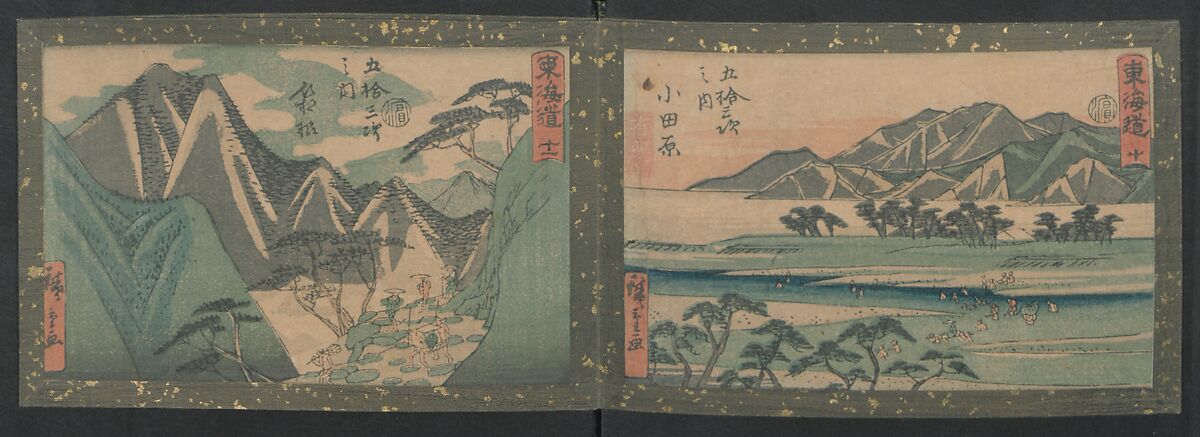 東海道 十
五拾三次
之内
小田原
廣重画
東海道 十一
五拾三次
之内
箱根
廣重画